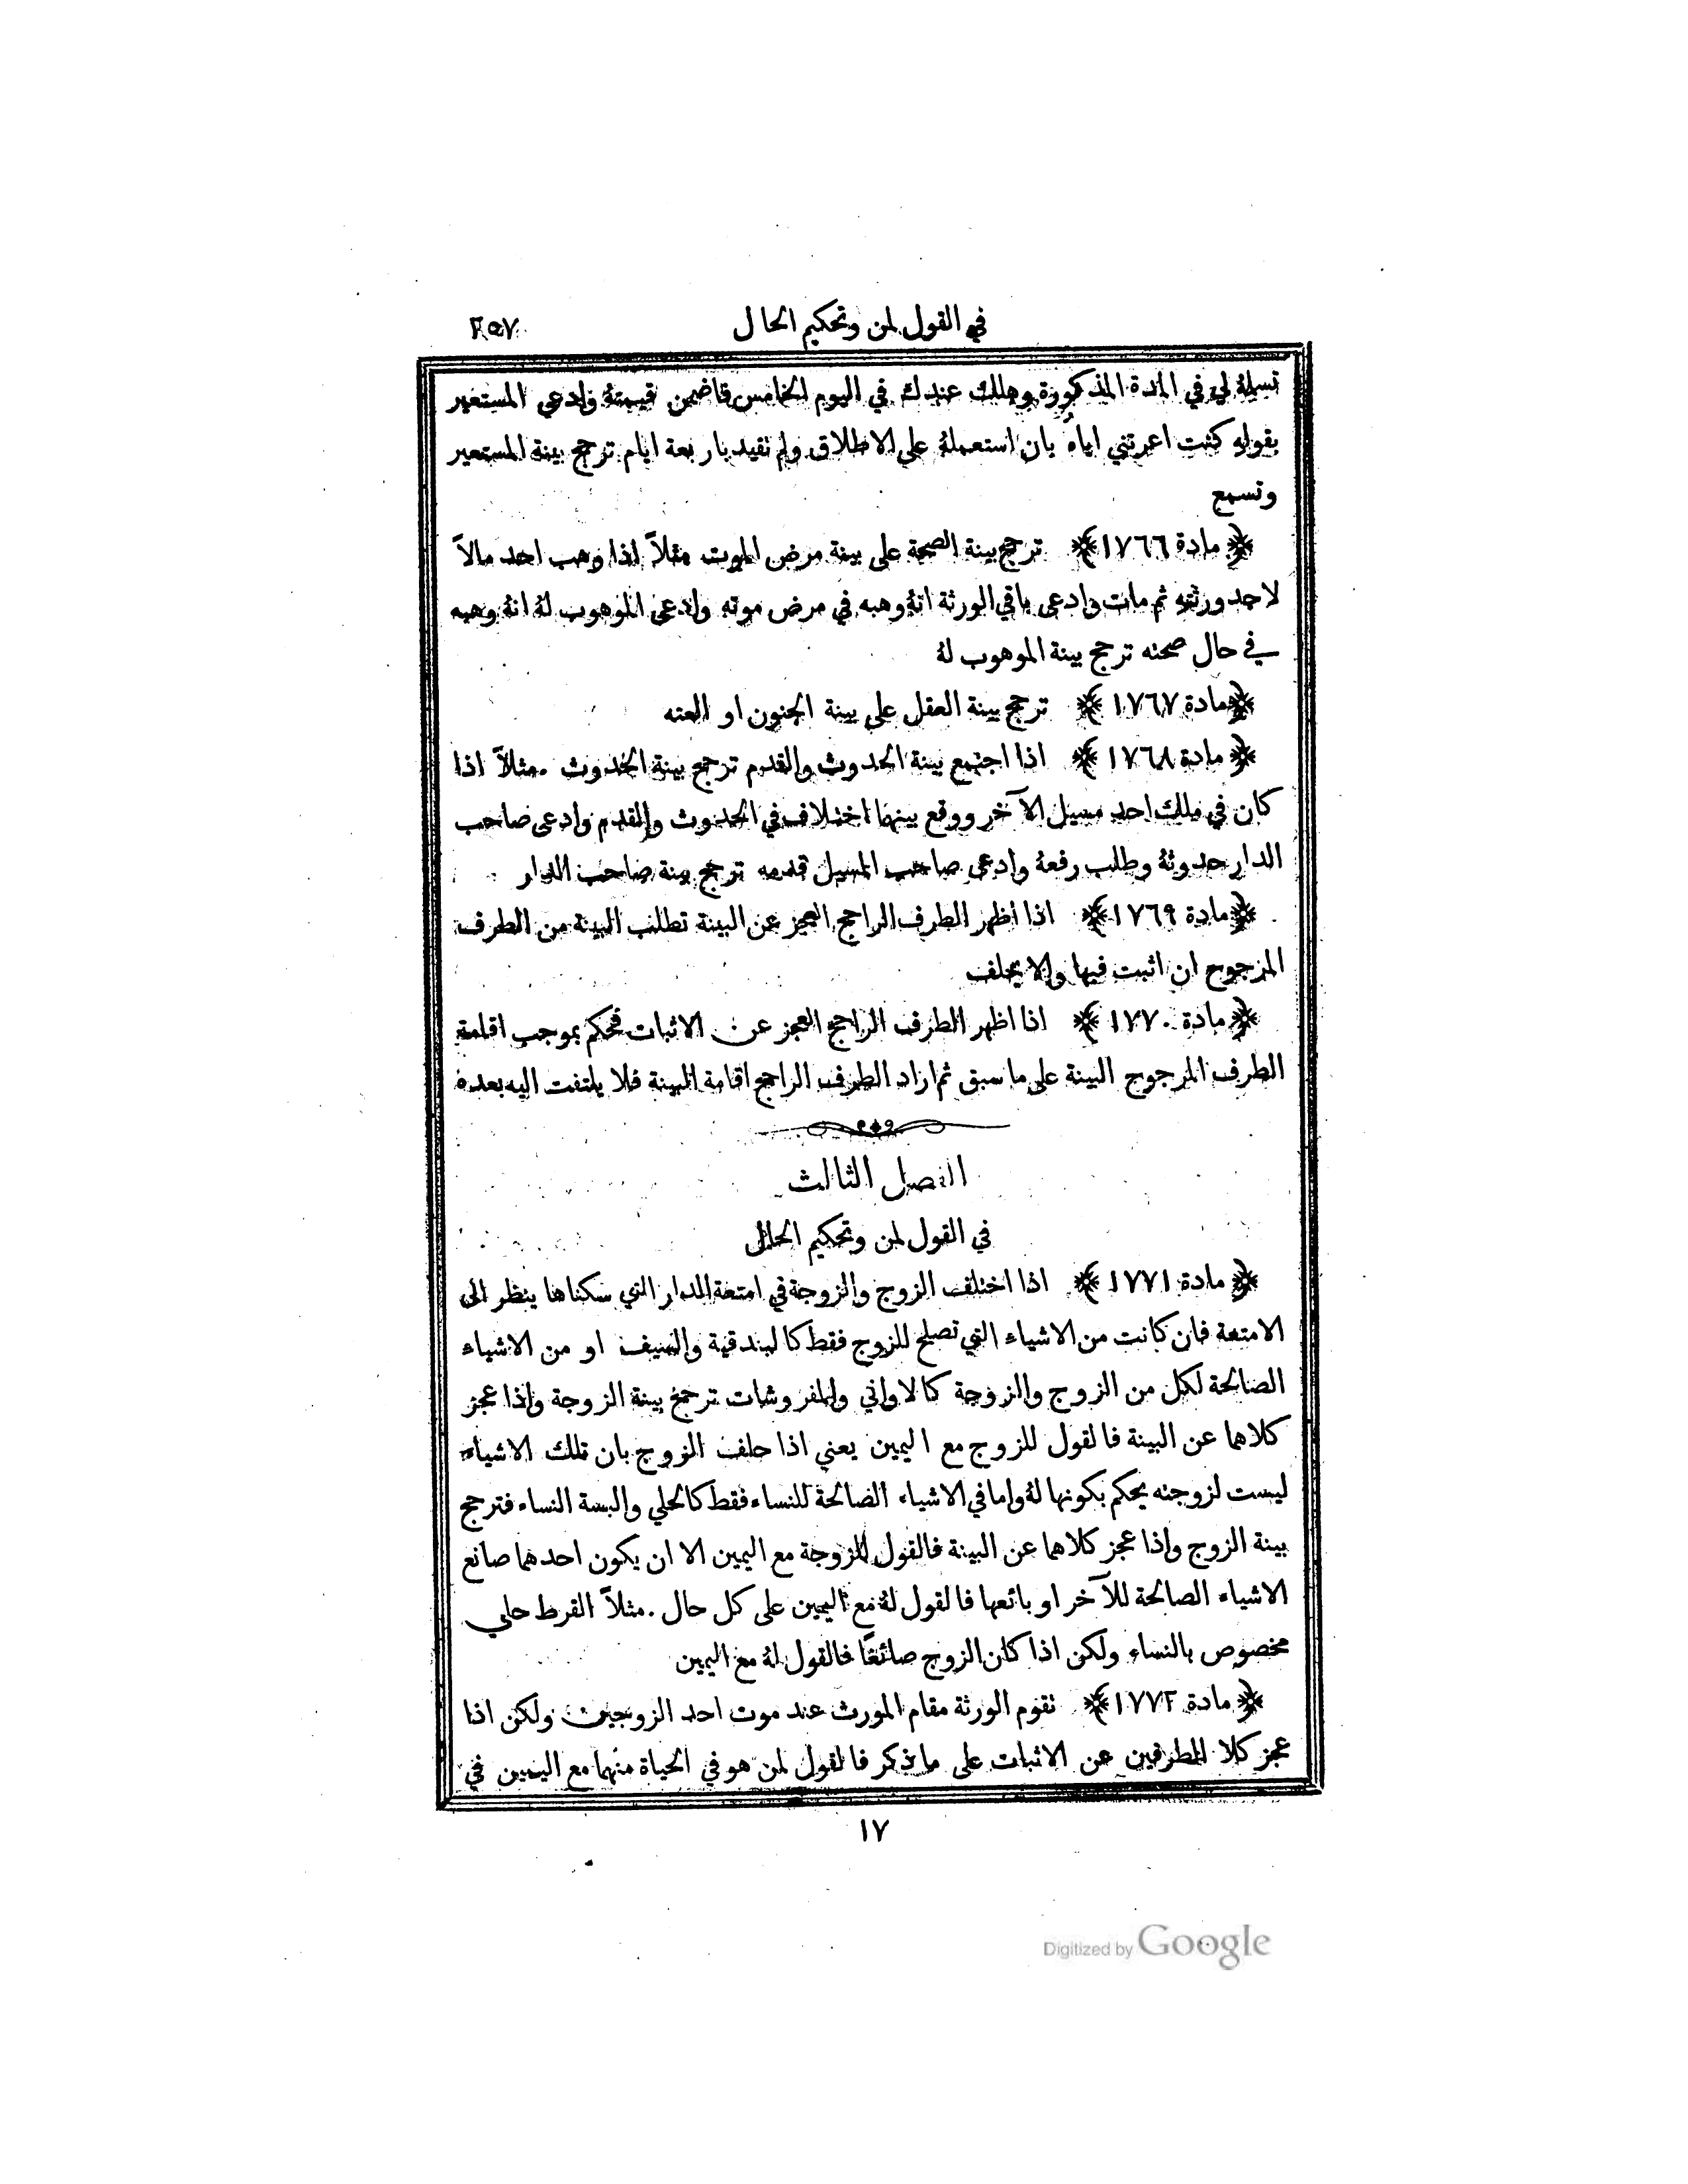 في القول لمن وتحكيم الحال ٢٥٧
تسلمهُ لي في المدة المذكورة وهلك عندك في اليوم الخامس فاضمن قيمتهُ وادعى المستعير
بقوله كنت اعرتني اياهُ بان استعملهُ على الاطلاق ولم تقيد باربعة ايام ترجح بينة المستعير
وتسمع
﴿ مادة ١٧٦٦ ﴾ ترجح بينة الصحة على بينة مرض الموت مثلاً اذا وهب احد مالاً
لاحد ورثته ثم مات وادعى باقي الورثة انهُ وهبه في مرض موته وادعى الموهوب لهُ انهُ وهبه
في حال صحته ترجح بينة الموهوب لهُ
﴿ مادة ١٧٦٧ ﴾ ترجح بينة العقل على بينة الجنون او العته
﴿ مادة ١٧٦٨ ﴾ اذا اجتمع بينة الحدوث والقدم ترجح بينة الحدوث . مثلاً اذا
كان في ملك احد مسيل لآخر ووقع بينهما اختلاف في الحدوث والقدم وادعى صاحب
الدار حدوثهُ وطلب رفعهُ وادعى صاحب المسيل قدمه ترجح بينة صاحب الدار
﴿ مادة ١٧٦٩ ﴾ اذا اظهر الطرف الراجح العجز عن البينة تطلب البينة من الطرف
المرجوح ان اثبت فبها والا يحلف
﴿ مادة ١٧٧٠ ﴾ اذا اظهر الطرف الراجح العجز عن الاثبات فحكم بموجب اقامة
الطرف المرجوح البينة على ما سبق ثم اراد الطرف الراجح اقامة البينة فلا يلتفت اليه بعده
الفصل الثالث
في القول لمن وتحكيم الحال
﴿ مادة ١٧٧١ ﴾ اذا اختلف الزوج والزوجة في امتعة الدار التي سكناها ينظر الى
الامتعة فان كانت من الاشياء التي تصلح للزوج فقط كالبندقية والسيف او من الاشياء
الصالحة لكل من الزوج والزوجة كالاواني والمفروشات ترجح بينة الزوجة واذا عجز
كلاهما عن البينة فالقول للزوج مع اليمين يعني اذا حلف الزوج بان تلك الاشياء
ليست لزوجته يحكم بكونها لهُ واما في الاشياء الصالحة للنساء فقط كالحلي والبسة النساء فترجح
بينة الزوج واذا عجز كلاهما عن البينة فالقول للزوجة مع اليمين الا ان يكون احدهما صانع
الاشياء الصالحة للآخر او بائعها فالقول لهُ مع اليمين على كل حال . مثلاً القرط حلي
مخصوص بالنساء ولكن اذا كان الزوج صائغًا فالقول لهُ مع اليمين
﴿ مادة ١٧٧٢ ﴾ تقوم الورثة مقام المورث عند موت احد الزوجين ولكن اذا
عجز كلا الطرفين عن الاثبات على ما ذكر فالقول لمن هو في الحياة منهما مع اليمين في
١٧
Digitized by Google